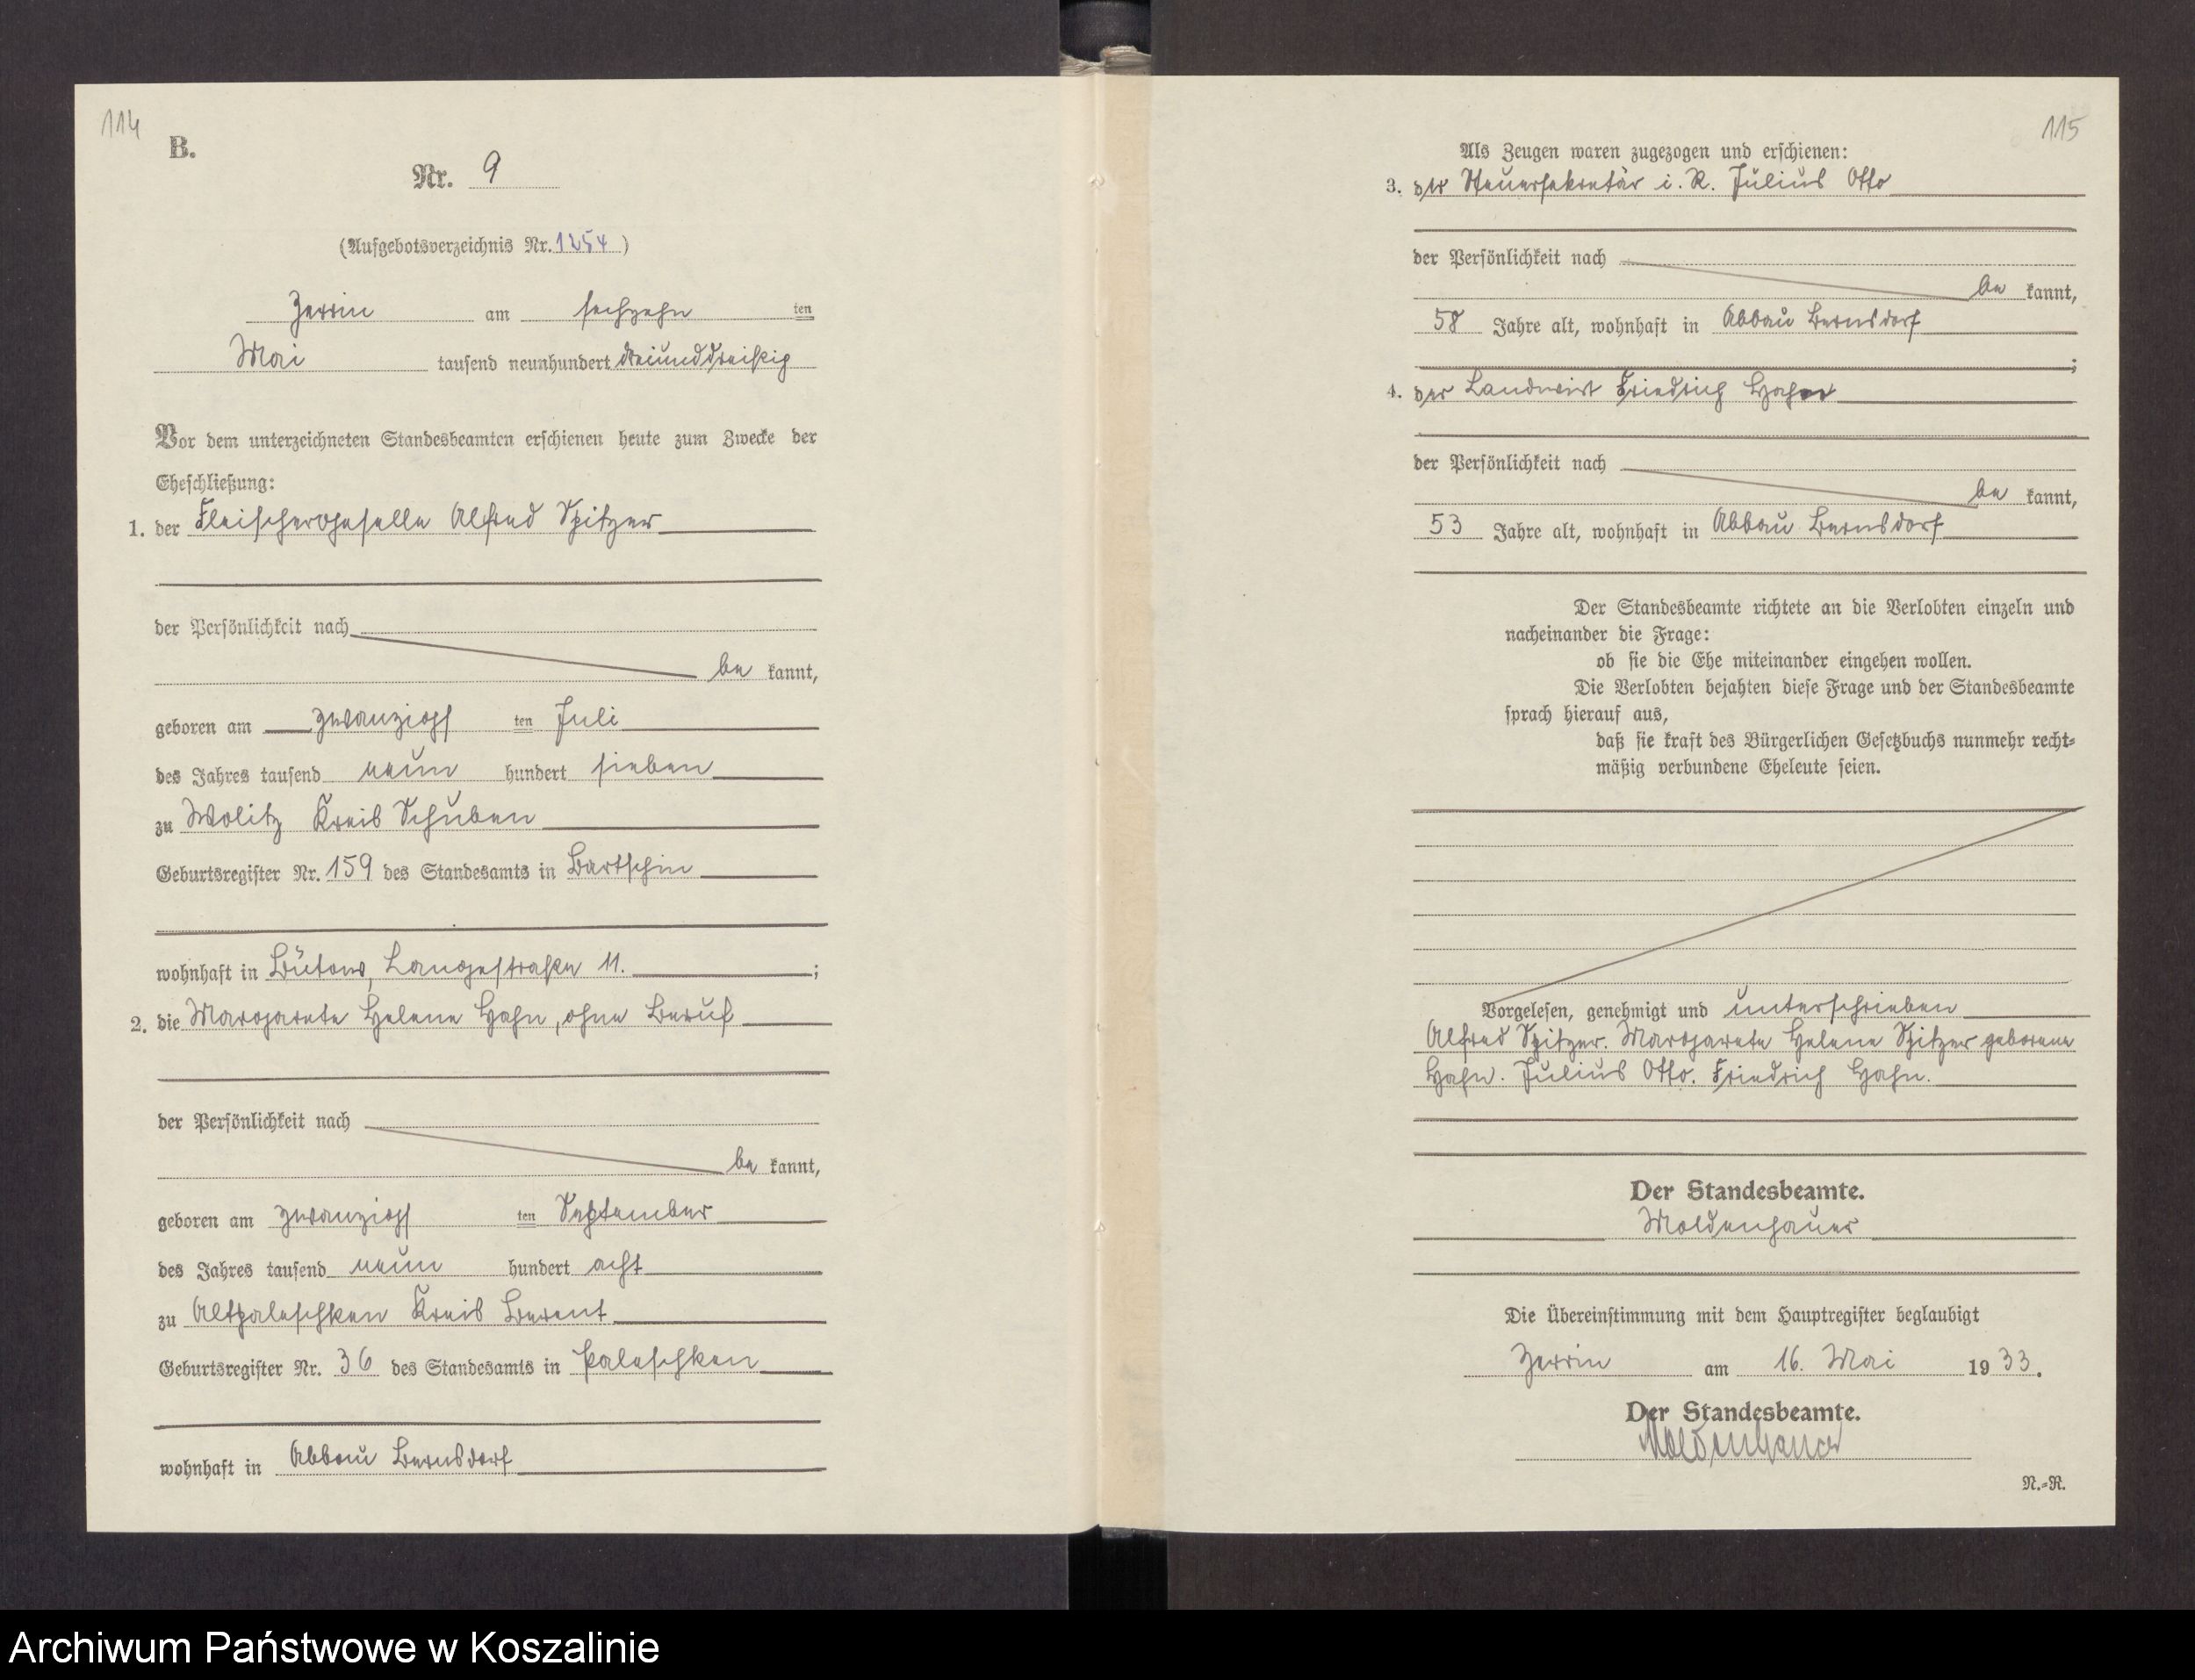 114
B.
Nr. 9
(Aufgebotsverzeichnis Nr. 1254)
Zerrin am sechzehn ten
Mai tausend neunhundert dreiunddreißig
Vor dem unterzeichneten Standesbeamten erschienen heute zum Zwecke der
Eheschließung:
1. der Fleischergeselle Alfred Spitzer
der Persönlichkeit nach
be kannt,
geboren am zwanzigs ten Juli
des Jahres tausend neun hundert sieben
zu Wolitz Kreis Schuben
Geburtsregister Nr. 159 des Standesamts in Bartschin
wohnhaft in Bütow, Langestraße 11. ;
2. die Margarete Helene Hahn, ohne Beruf
der Persönlichkeit nach
be kannt,
geboren am zwanzigs ten September
des Jahres tausend neun hundert acht
zu Altpaleschken Kreis Berent
Geburtsregister Nr. 36 des Standesamts in Paleschken
wohnhaft in Abbau Bernsdorf
115
Als Zeugen waren zugezogen und erschienen:
3. der Steuersekretär i. R. Julius Otto
der Persönlichkeit nach
be kannt,
58 Jahre alt, wohnhaft in Abbau Bernsdorf
;
4. der Landwirt Friedrich Hahn
der Persönlichkeit nach
be kannt,
53 Jahre alt, wohnhaft in Abbau Bernsdorf
Der Standesbeamte richtete an die Verlobten einzeln und
nacheinander die Frage:
ob sie die Ehe miteinander eingehen wollen.
Die Verlobten bejahten diese Frage und der Standesbeamte
sprach hierauf aus,
daß sie kraft des Bürgerlichen Gesetzbuchs nunmehr recht-
mäßig verbundene Eheleute seien.
Vorgelesen, genehmigt und unterschrieben
Alfred Spitzer. Margarete Helene Spitzer geborene
Hahn. Julius Otto. Friedrich Hahn.
Der Standesbeamte.
Moldenhauer
Die Übereinstimmung mit dem Hauptregister beglaubigt
Zerrin am 16. Mai 1933.
Der Standesbeamte.
Moldenhauer
N.-R.
Archiwum Państwowe w Koszalinie